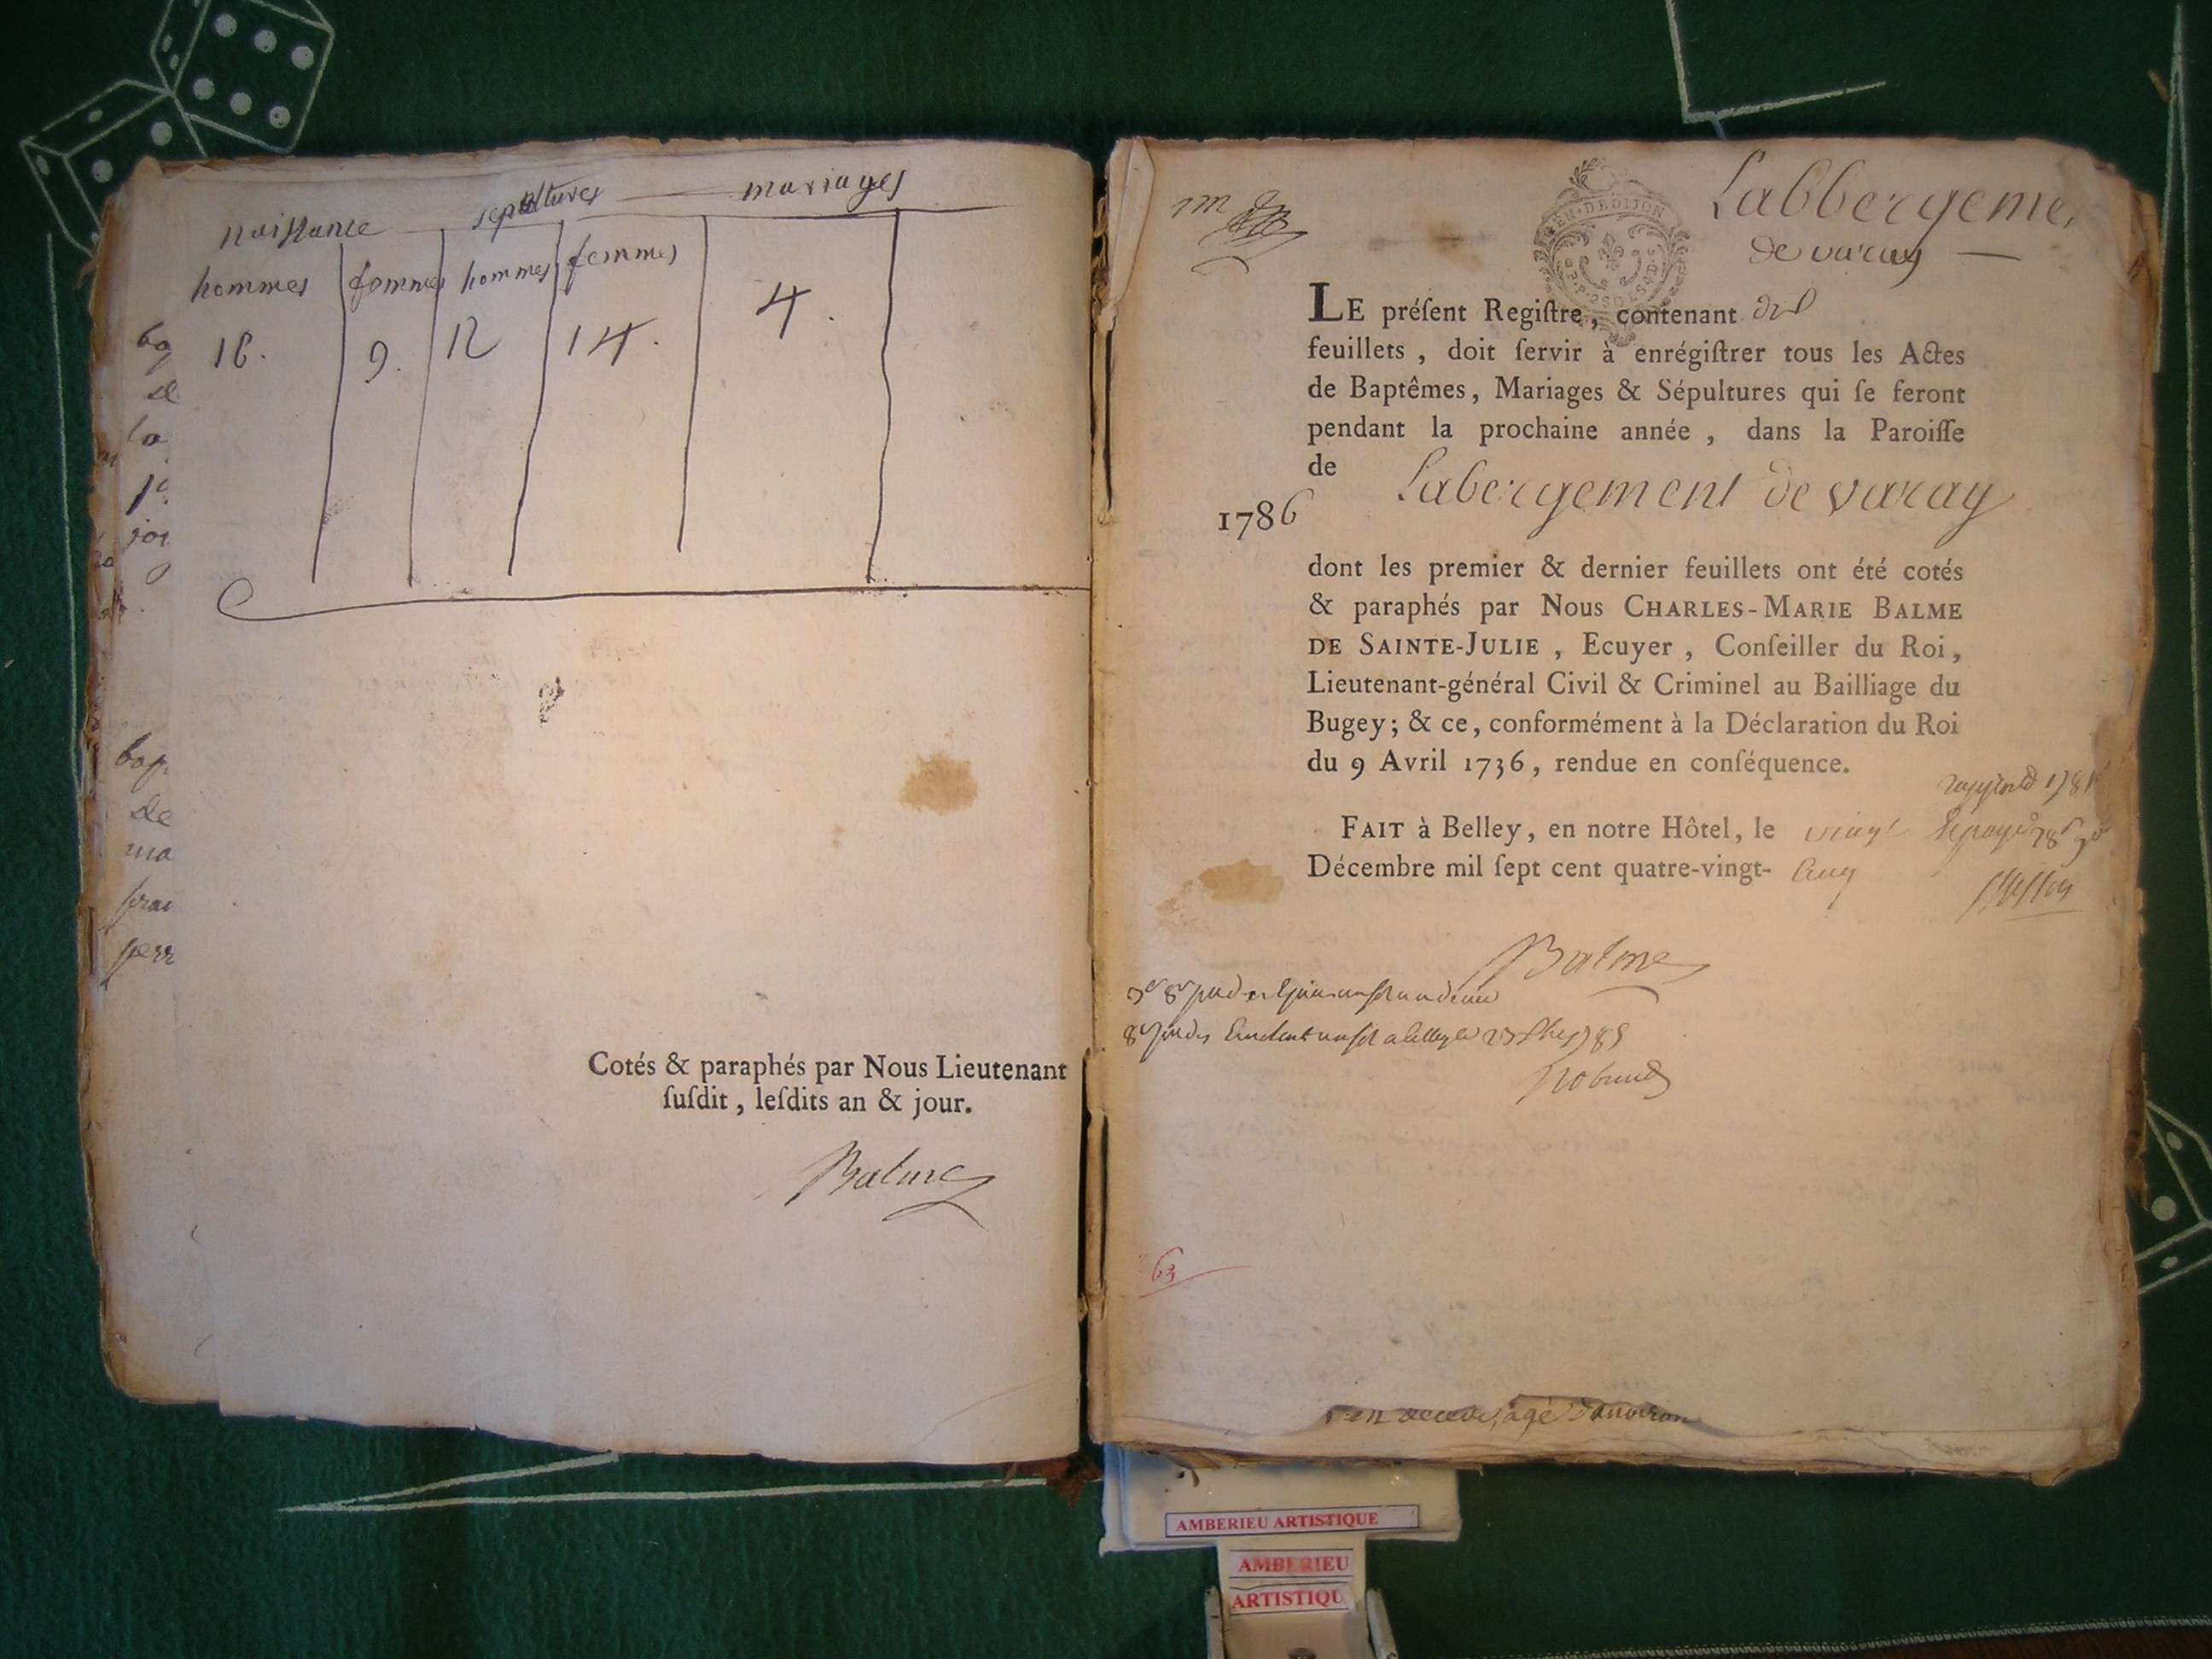 naissance sepultures mariages
hommes femmes hommes femmes
16. 9. 12 14. 4.
ba
de
la
joi
bap
de
ma
frai
perr
Cotés & paraphés par Nous Lieutenant
ſuſdit, leſdits an & jour.
Balme
GEN·DE DIJON
Labbergeme
de varay
LE préſent Regiſtre, contenant
feuillets, doit ſervir à enrégiſtrer tous les Actes
de Baptêmes, Mariages & Sépultures qui ſe feront
pendant la prochaine année, dans la Paroiſſe
de Labergement de varay
1786
dont les premier & dernier feuillets ont été cotés
& paraphés par Nous CHARLES-MARIE BALME
DE SAINTE-JULIE, Ecuyer, Conſeiller du Roi,
Lieutenant-général Civil & Criminel au Bailliage du
Bugey; & ce, conformément à la Déclaration du Roi
du 9 Avril 1736, rendue en conſéquence.
FAIT à Belley, en notre Hôtel, le vingt
Décembre mil ſept cent quatre-vingt- Cinq
Balme
63
agé d'environ
AMBERIEU ARTISTIQUE
AMBERIEU
ARTISTIQU